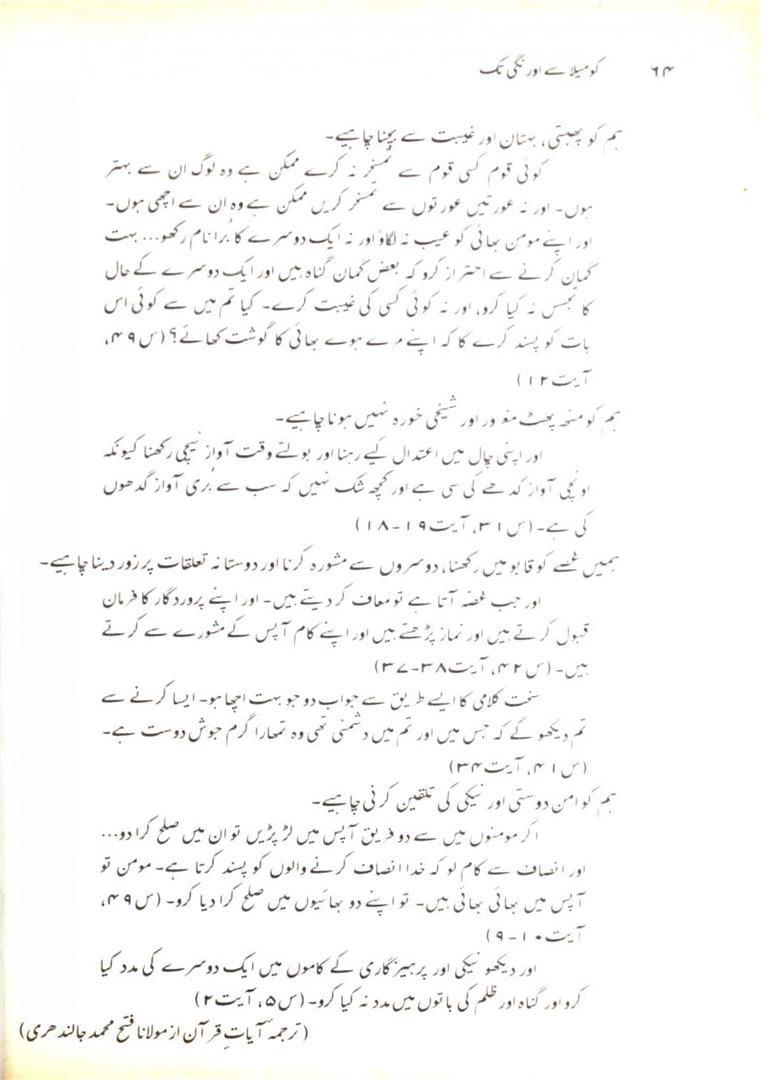 ۶۴ کومیلا سے اورنگی تک
ہم کو پھبتی، بہتان اور غیبت سے بچنا چاہیے۔
کوئی قوم کسی قوم سے تمسخر نہ کرے ممکن ہے وہ لوگ ان سے بہتر
ہوں۔ اور نہ عورتیں عورتوں سے تمسخر کریں ممکن ہے وہ ان سے اچھی ہوں۔
اور اپنے مومن بھائی کو عیب نہ لگاؤ اور نہ ایک دوسرے کا بُرا نام رکھو... بہت
گمان کرنے سے احتراز کرو کہ بعض گمان گناہ ہیں اور ایک دوسرے کے حال
کا تجسس نہ کیا کرو، اور نہ کوئی کسی کی غیبت کرے۔ کیا تم میں سے کوئی اس
بات کو پسند کرے گا کہ اپنے مرے ہوے بھائی کا گوشت کھائے؟ (س ۴۹،
آیت ۱۲)
ہم کو منھ پھٹ مغرور اور شیخی خورہ نہیں ہونا چاہیے۔
اور اپنی چال میں اعتدال کیے رہنا اور بولتے وقت آواز نیچی رکھنا کیونکہ
اونچی آواز گدھے کی سی ہے اور کچھ شک نہیں کہ سب سے بُری آواز گدھوں
کی ہے۔ (س ۳۱، آیت ۱۹-۱۸)
ہمیں غصے کو قابو میں رکھنا، دوسروں سے مشورہ کرنا اور دوستانہ تعلقات پر زور دینا چاہیے۔
اور جب غصّہ آتا ہے تو معاف کر دیتے ہیں۔ اور اپنے پروردگار کا فرمان
قبول کرتے ہیں اور نماز پڑھتے ہیں اور اپنے کام آپس کے مشورے سے کرتے
ہیں۔ (س ۴۲، آیت ۳۸-۳۷)
سخت کلامی کا ایسے طریق سے جواب دو جو بہت اچھا ہو۔ ایسا کرنے سے
تم دیکھو گے کہ جس میں اور تم میں دشمنی تھی وہ تمھارا گرم جوش دوست ہے۔
(س ۴۱، آیت ۳۴)
ہم کو امن دوستی اور نیکی کی تلقین کرنی چاہیے۔
اگر مومنوں میں سے دو فریق آپس میں لڑ پڑیں تو ان میں صلح کرا دو...
اور انصاف سے کام لو کہ خدا انصاف کرنے والوں کو پسند کرتا ہے۔ مومن تو
آپس میں بھائی بھائی ہیں۔ تو اپنے دو بھائیوں میں صلح کرا دیا کرو۔ (س ۴۹،
آیت ۱۰-۹)
اور دیکھو نیکی اور پرہیزگاری کے کاموں میں ایک دوسرے کی مدد کیا
کرو اور گناہ اور ظلم کی باتوں میں مدد نہ کیا کرو۔ (س ۵، آیت ۲)
(ترجمہٴ آیاتِ قرآن از مولانا فتح محمد جالندھری)